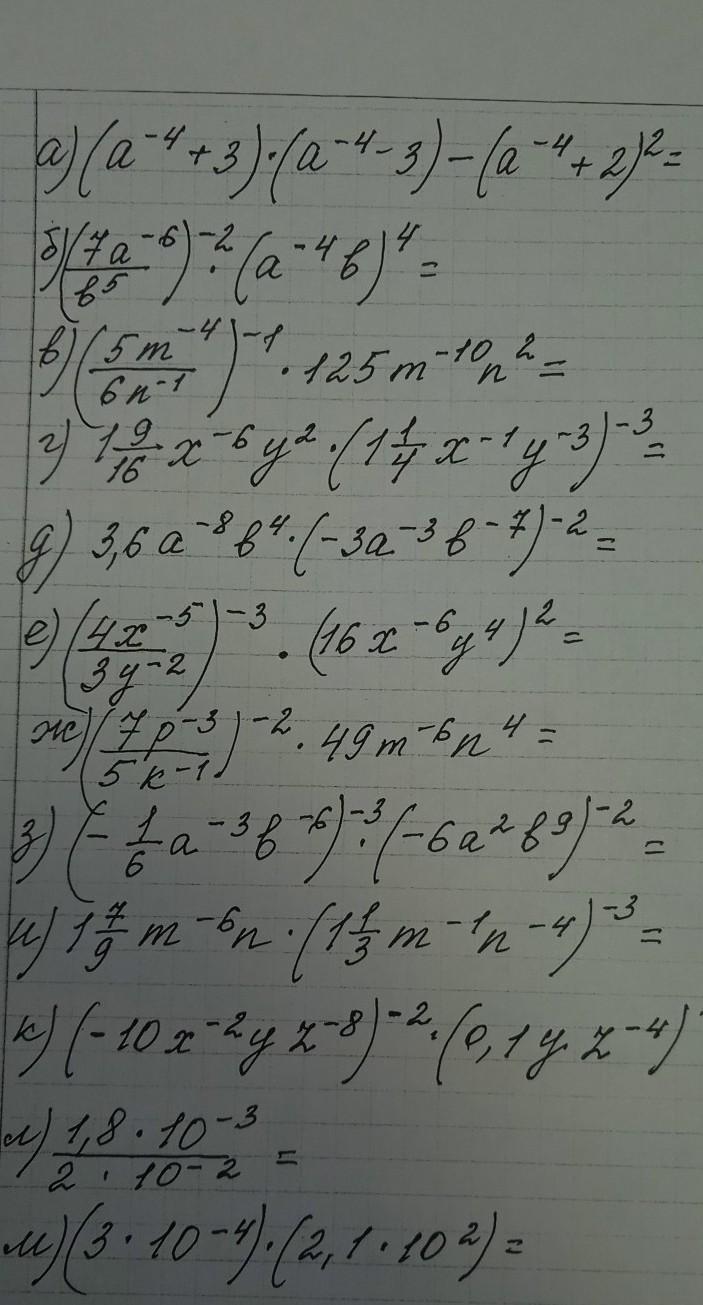 а) (a⁻⁴ + 3)·(a⁻⁴ - 3) - (a⁻⁴ + 2)² =
б) (7a⁻⁶/b⁵)⁻² · (a⁻⁴b)⁴ =
в) (5m⁻⁴/6n⁻¹)⁻¹ · 125m⁻¹⁰n² =
г) 1 9/16 x⁻⁶y² · (1 1/4 x⁻¹y⁻³)⁻³ =
д) 3,6a⁻⁸b⁴ · (-3a⁻³b⁻⁷)⁻² =
е) (4x⁻⁵/3y⁻²)⁻³ · (16x⁻⁶y⁴)² =
ж) (7p⁻³/5k⁻¹)⁻² · 49m⁻⁶n⁴ =
з) (-1/6 a⁻³b⁻⁶)⁻³ · (-6a²b⁹)⁻² =
и) 1 7/9 m⁻⁶n · (1 1/3 m⁻¹n⁻⁴)⁻³ =
к) (-10x⁻²yz⁻⁸)⁻² · (0,1yz⁻⁴)
л) 1,8 · 10⁻³/2 · 10⁻² =
м) (3 · 10⁻⁴) · (2,1 · 10²) =